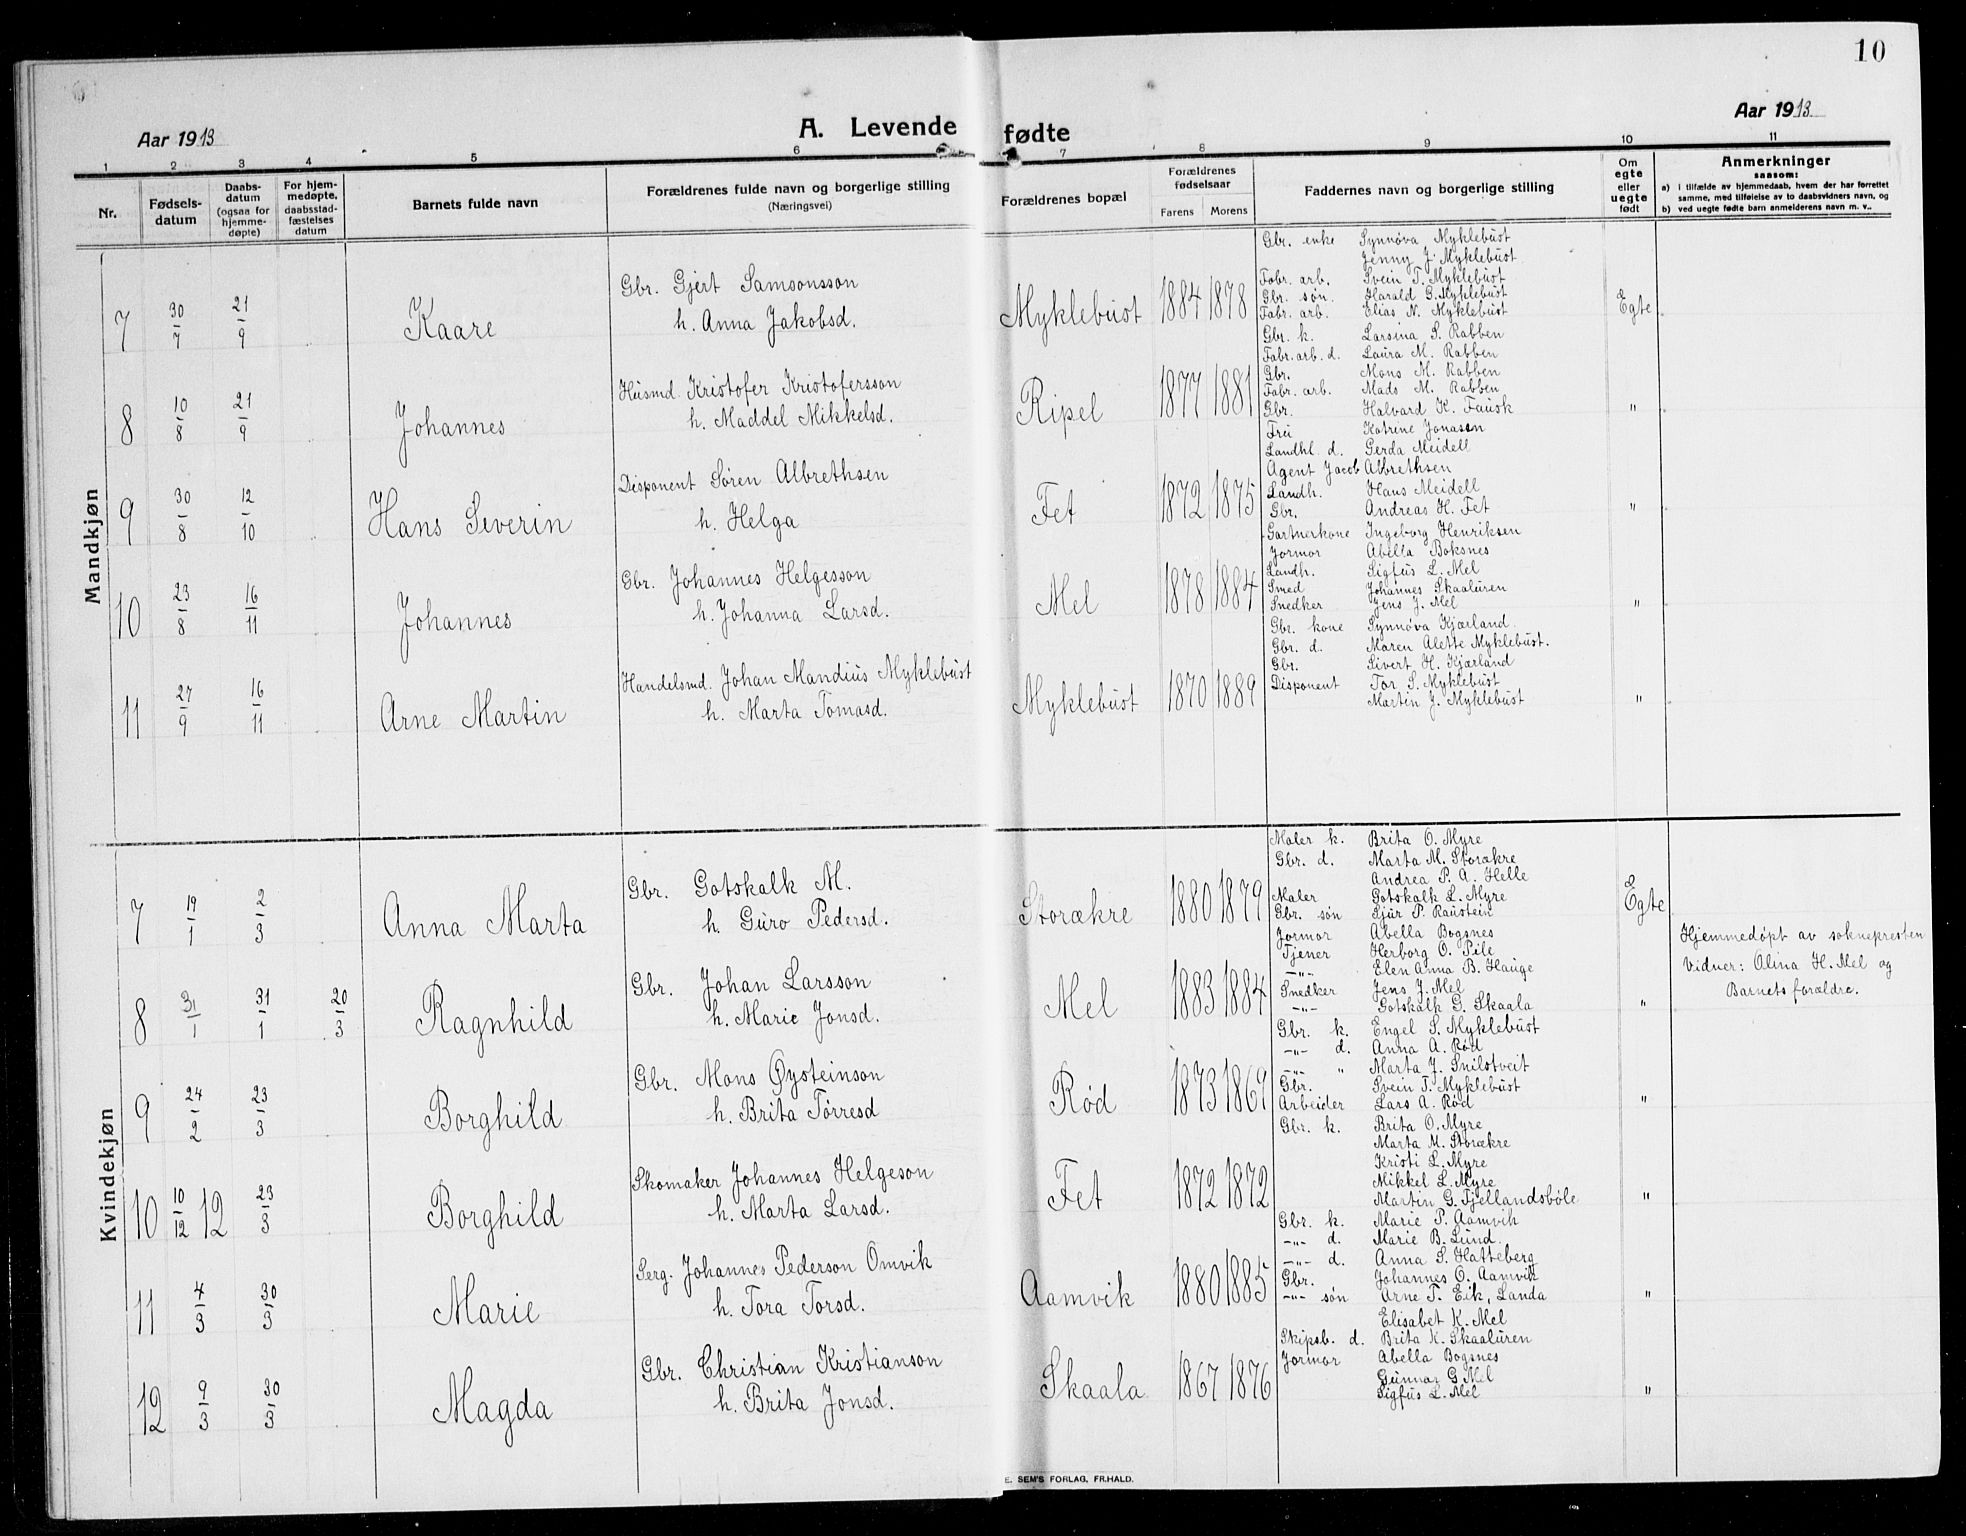 10
Aar 1913
A. Levende fødte
Aar 1913
1 2 3 4 5 6 7 8 9 10 11
Nr.
Fødsels-
datum
Daabs-
datum
(ogsaa for
hjemme-
døpte)
For hjem-
medøpte,
daabsstad-
fæstelses
datum
Barnets fulde navn
Forældrenes fulde navn og borgerlige stilling
(Næringsvei)
Forældrenes bopæl
Forældrenes
fødselsaar
Farens Morens
Faddernes navn og borgerlige stilling
Om
egte
eller
uegte
født
Anmerkninger
saasom:
a) i tilfælde av hjemmedaab, hvem der har forrettet
samme, med tilføielse av to daabsvidners navn, og
b) ved uegte født barn anmelderens navn m. v..
Mandkjøn
7 30/7 21/9 Kaare
Gbr. Gjert Samsonsson
h. Anna Jakobsd.
Myklebust 1884 1878
Gbr. enke Synnøva Myklebust
Jenny J. Myklebust
Fabr. arb. Svein T. Myklebust
Gbr. søn. Harald G. Myklebust
Fabr. arb. Elias N. Myklebust
Egte
8 10/8 21/9 Johannes
Husmd. Kristofer Kristofersson
h. Maddel Mikkelsd.
Ripel 1877 1881
Gbr. k. Larsina S. Rabben
Fabr. arb. d. Laura M. Rabben
Gbr. Mons M. Rabben
Fabr. arb. Mads M. Rabben
Gbr. Halvard K. Fausk
"
9 30/8 12/10 Hans Severin
Disponent Søren Albrethsen
h. Helga
Fet 1872 1875
Frü Katrine Jonassen
Landhl. d. Gerda Meidell
Agent Jacob Albrethsen
Landh. Hans Meidell
Gbr. Andreas H. Fet
"
10 23/8 16/11 Johannes
Gbr. Johannes Helgesson
h. Johanna Larsd.
Mel 1878 1884
Gartnerkone Ingeborg Henriksen
Jormor Abella Boksnes
Landh. Sigfus L. Mel
Smed Johannes Skaaluren
Snedker Jens J. Mel
"
11 27/9 16/11 Arne Martin
Handelsmd. Johan Mandius Myklebust
h. Marta Tomasd.
Myklebust 1870 1889
Gbr. kone Synnøva Kjærland.
Gbr. d. Maren Alette Myklebust.
Gbr. Sivert H. Kjærland
Disponent Tor S. Myklebust
Martin J. Myklebust
"
Kvindekjøn
7 19/1 2/3 Anna Marta
Gbr. Gotskalk M.
h. Guro Pedersd.
Storækre 1880 1879
Maler k. Brita O. Myre
Gbr. d. Marta M. Storækre
Andrea P. A. Helle
Maler Gotskalk L. Myre
Gbr. søn Sjur P. Raustein
Egte
8 31/1 31/1 20/3 Ragnhild
Gbr. Johan Larsson
h. Marie Jonsd.
Mel 1883 1884
Jormor Abella Bogsnes
Tjener Herborg O. Pile
-"- Elen Anna B. Hauge
Snedker Jens J. Mel
-"- Gotskalk G. Skaala
"
Hjemmedøpt av sokнepresten
Vidner: Alina H. Mel og
Barnets forældre.
9 24/2 23/3 Borghild
Gbr. Mons Øysteinson
h. Brita Tørresd
Rød 1873 1869
Gbr. k. Engel S. Myklebust
-"- d. Anna A. Rød
-"- " Marta J. Snilstveit
Gbr. Svein T. Myklebust
Arbeider Lars A. Rød
"
10 10/12 12 23/3 Borghild
Skomaker Johannes Helgeson
h. Marta Larsd.
Fet 1872 1872
Gbr. k. Brita O. Myre
Marta M. Storækre
Kristi L. Myre
Mikkel L. Myre
Martin G. Fjellandsbøle
"
11 4/3 30/3 Marie
Serg. Johannes Pederson Omvik
h. Tora Torsd.
Aamvik 1880 1885
Gbr. k. Marie P. Aamvik
-"- d. Marie B. Lund.
-"- d. Anna S. Hatteberg
Gbr. Johannes O. Aamvik
-"- søn Arne T. Eik, Landa
"
12 9/3 30/3 Magda
Gbr. Christian Kristianson
h. Brita Jonsd.
Skaala 1867 1876
Elisabet K. Mel
Skipsb. d. Brita K. Skaaluren
Jormor Abella Bogsnes
Gunnar G Mel
Sigfus L. Mel
"
E. SEM'S FORLAG, FR.HALD.